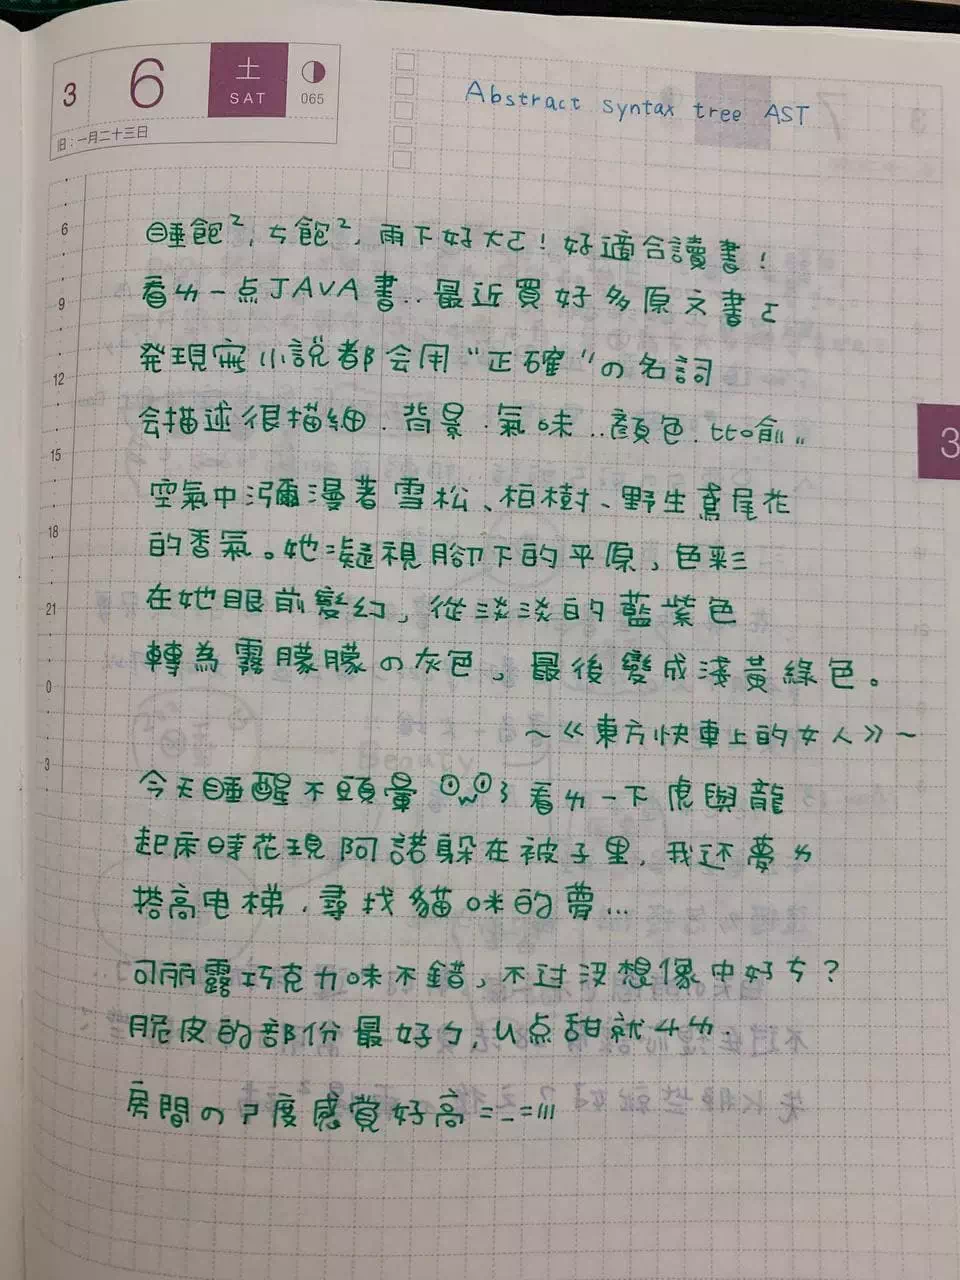 3 6 土 SAT 065
旧:一月二十三日
Abstract syntax tree AST
睡飽², ㄘ飽², 雨下好大ㄛ! 好適合讀書!
看ㄌ一点JAVA書.. 最近買好多原文書ㄛ
発現寫小説都会用“正確”の名詞
会描述很描細. 背景. 氣味.. 顏色. 比喻..
空氣中瀰漫著雪松、柏樹、野生鳶尾花
的香氣。她凝視腳下的平原, 色彩
在她眼前變幻, 從淡淡的藍紫色
轉為霧朦朦の灰色, 最後變成淺黃綠色。
~《東方快車上的女人》~
今天睡醒不頭暈 看ㄌ一下虎與龍
起床時花現阿諾躲在被子里, 我还夢ㄌ
搭高电梯. 尋找貓咪的夢...
可丽露巧克力味不錯, 不过沒想像中好ㄘ?
脆皮的部份最好ㄘ, 心点甜就ㄐㄌ.
房間のP度感覺好高=_=|||
6
9
12
15
18
21
0
3
3